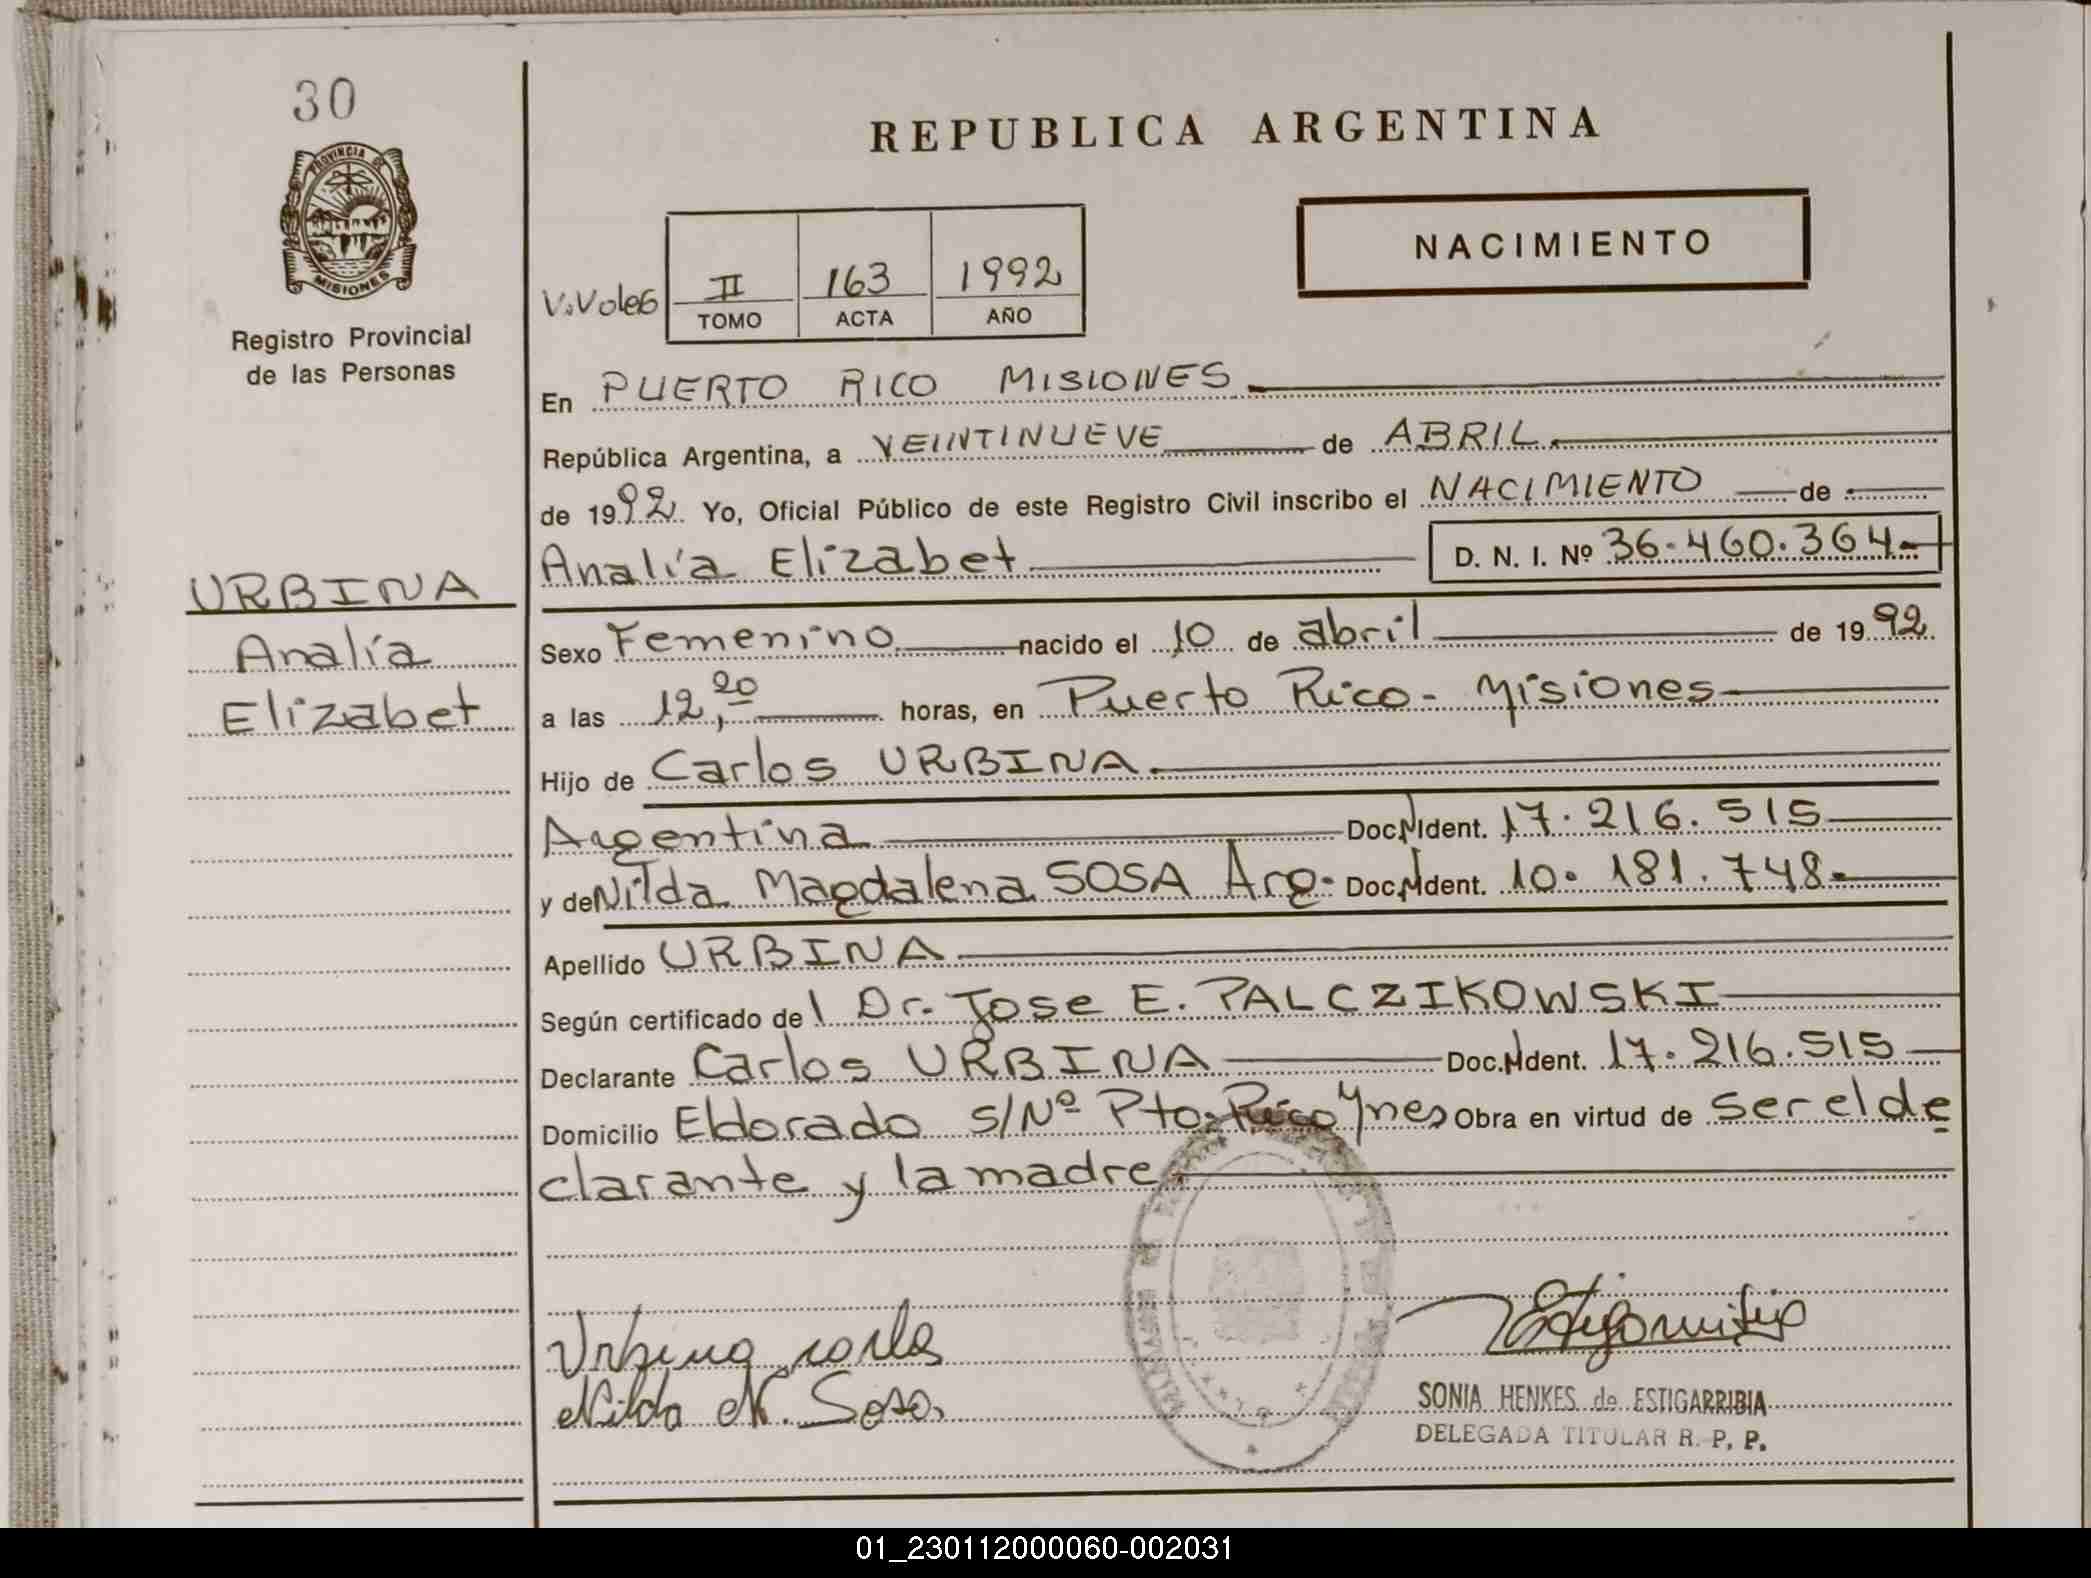 30
PROVINCIA DE
MISIONES
Registro Provincial
de las Personas
URBINA
Analía
Elizabet
REPUBLICA ARGENTINA
NACIMIENTO
II 163 1992
TOMO ACTA AÑO
En PUERTO RICO MISIONES
República Argentina, a VEINTINUEVE de ABRIL
de 1992 Yo, Oficial Público de este Registro Civil inscribo el NACIMIENTO de
Analía Elizabet D. N. I. Nº 36.460.364
Sexo Femenino nacido el 10 de abril de 1992
a las 12,20 horas, en Puerto Rico - Misiones
Hijo de Carlos URBINA
Argentina Doc. N Ident. 17.216.515
y de Nilda Magdalena SOSA Arg. Doc. N Ident. 10.181.748
Apellido URBINA
Según certificado del Dr. Jose E. PALCZIKOWSKI
Declarante Carlos URBINA Doc. N Ident. 17.216.515
Domicilio Eldorado S/Nº Pto. Rico Mnes Obra en virtud de ser el de
clarante y la madre.
Urbina carlos
Nilda M. Sosa
SONIA HENKES de ESTIGARRIBIA
DELEGADA TITULAR R. P. P.
01_230112000060-002031